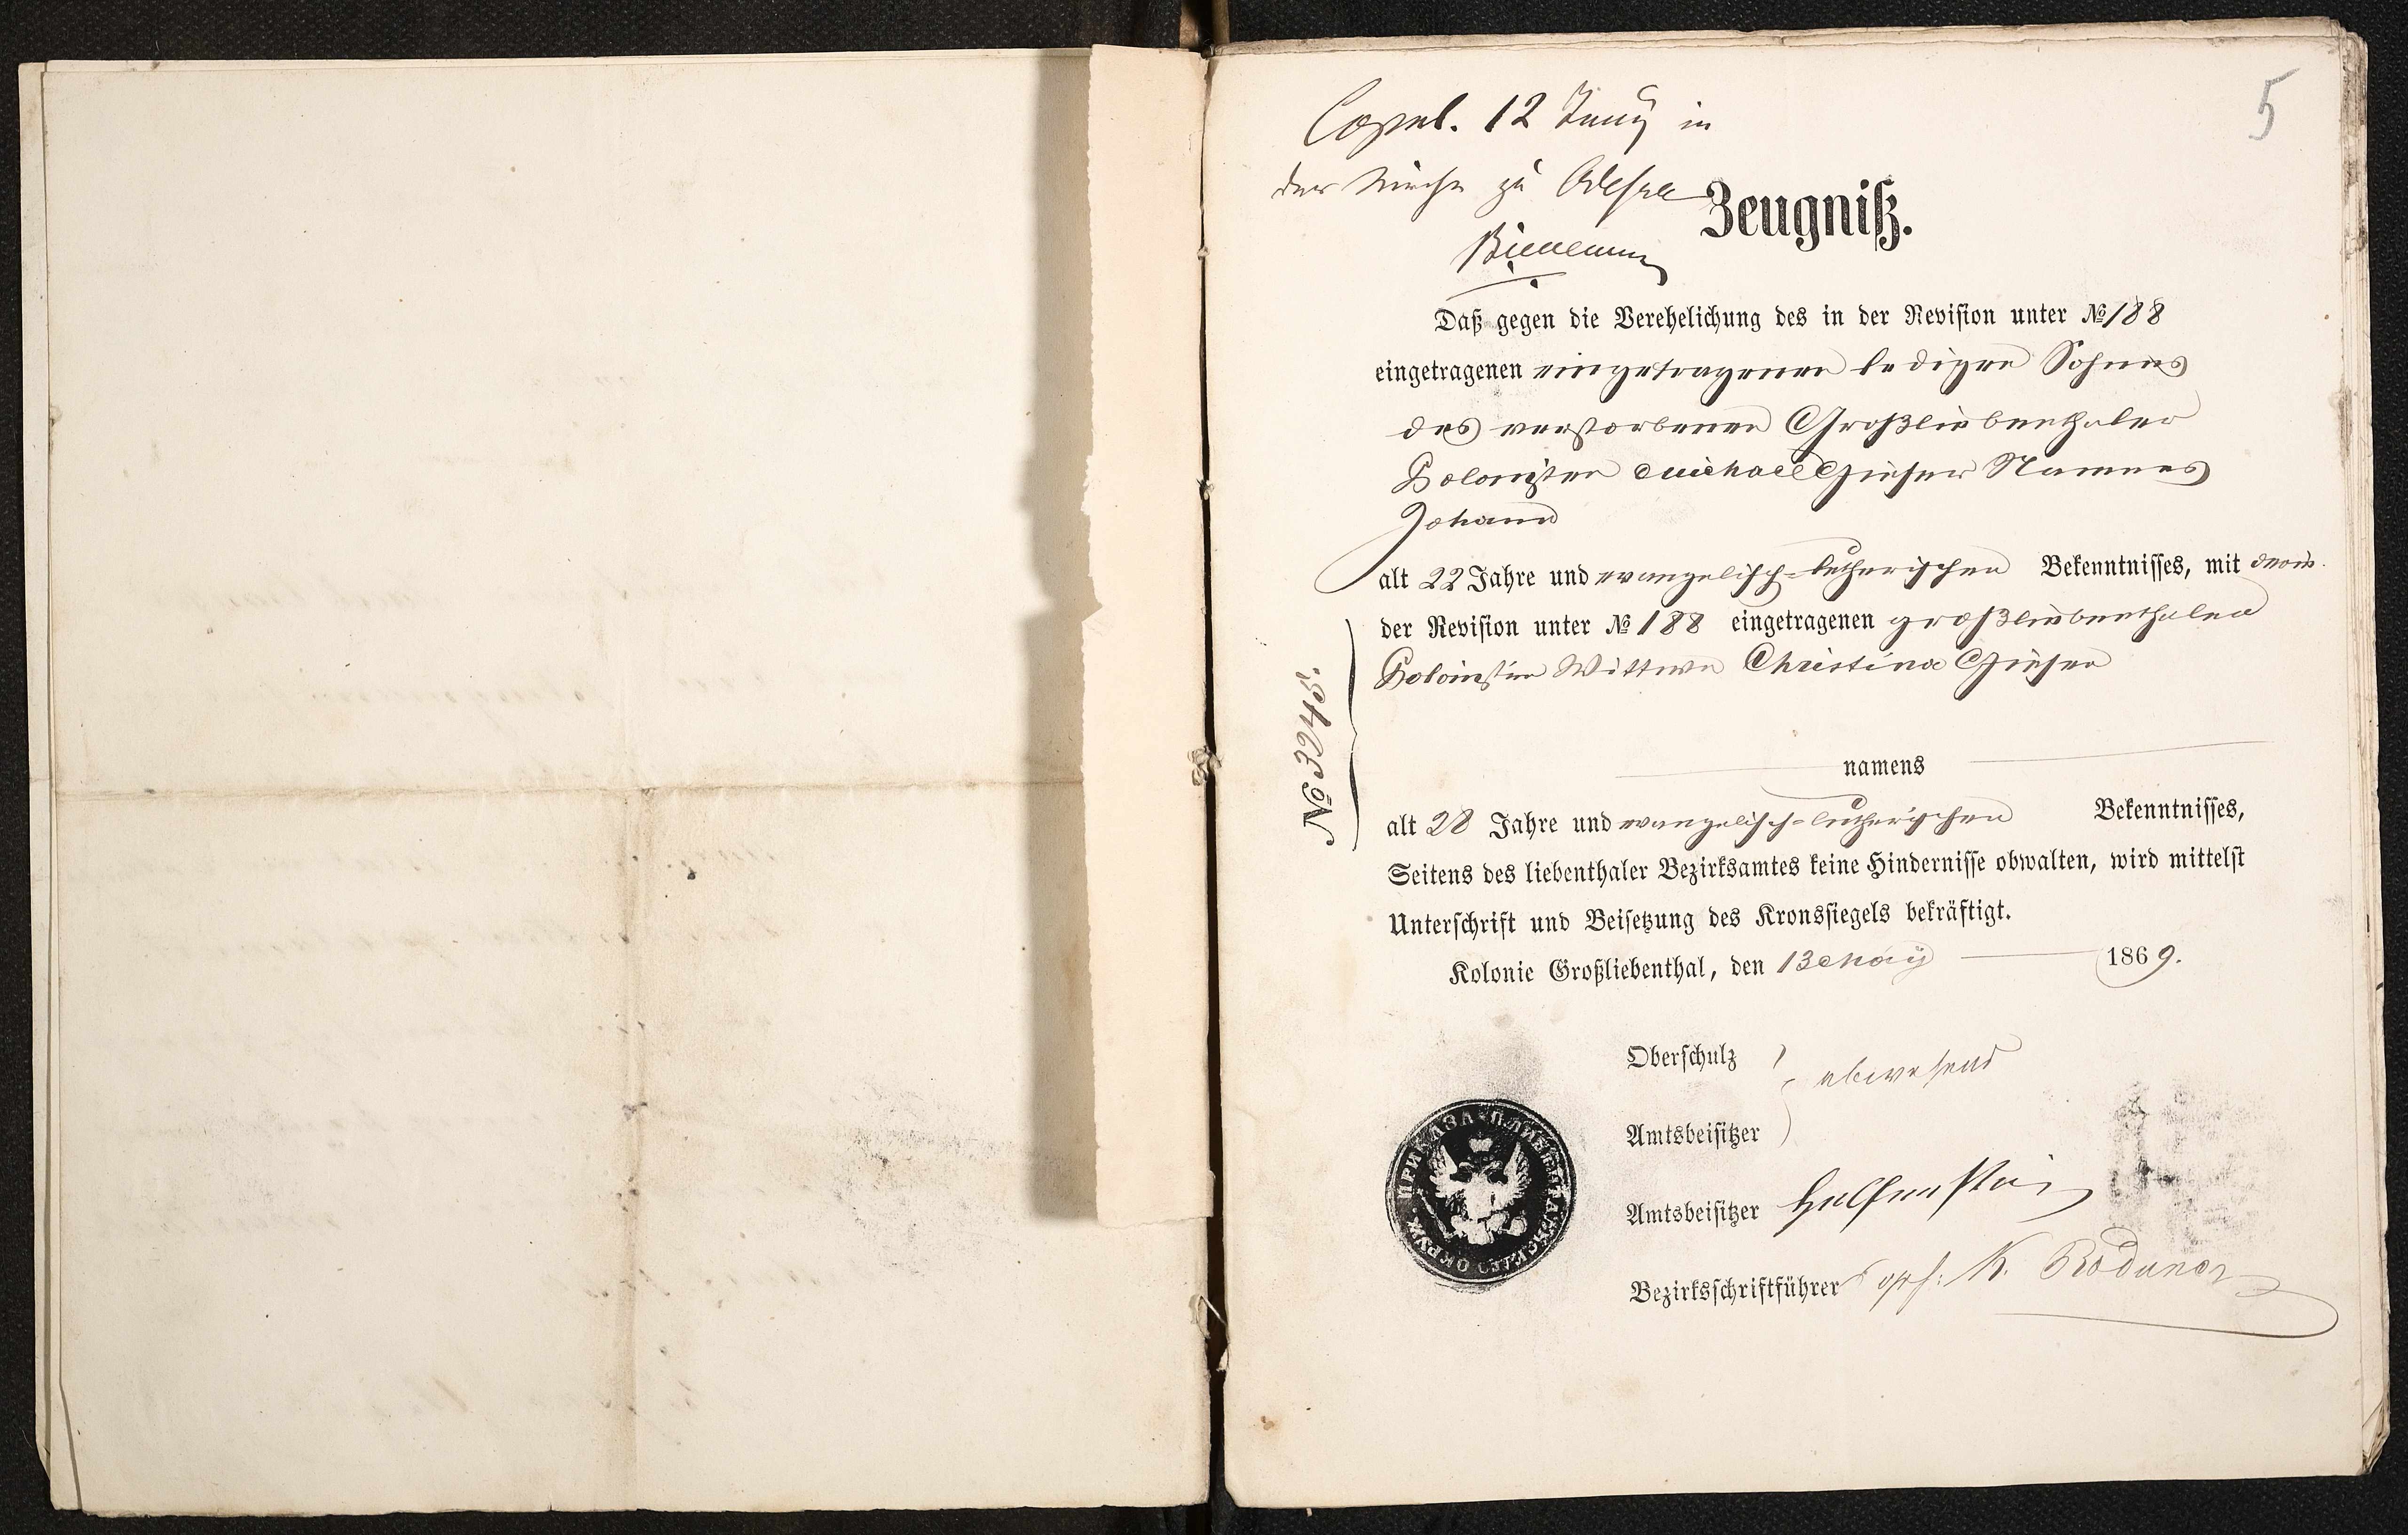 5
Copul. 12 Juny in
der Kirche zu Odessa
Bienemann
Zeugniß.
Daß gegen die Verehelichung des in der Revision unter № 188
eingetragenen eingetragenen ledigen Sohnes
des verstorbenen Großliebenthaler
Kolonisten Michael Gieser Namens
Johann
alt 22 Jahre und evangelisch-lutherischen Bekenntnisses, mit der in
der Revision unter № 188 eingetragenen großliebenthaler
Kolonistin Wittwe Christina Gieser
namens
alt 28 Jahre und evangelisch-lutherischen Bekenntnisses,
Seitens des liebenthaler Bezirksamtes keine Hindernisse obwalten, wird mittelst
Unterschrift und Beisetzung des Kronssiegels bekräftigt.
Kolonie Großliebenthal, den 13 May 1869.
№ 3245.
Oberschulz
abwesend
Amtsbeisitzer
Amtsbeisitzer Helfenstein
Bezirksschriftführer K. Roduner
ПРИКАЗА ОКРУЖ.